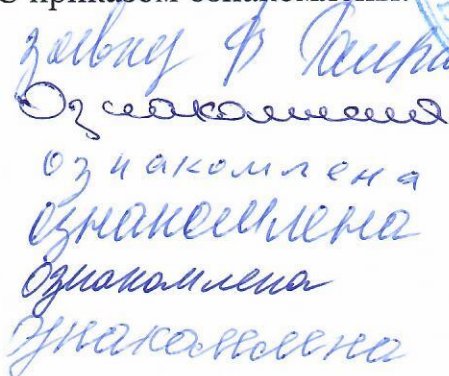 С приказом ознакомлены:
Ознакомлена
ознакомлена
ознакомлена
ознакомлена
ознакомлена